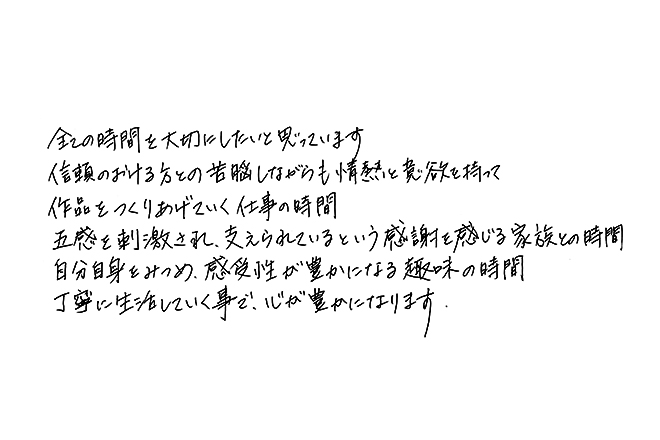 全ての時間を大切にしたいと思っています
信頼のおける方との苦悩しながらも情熱と意欲を持って
作品をつくりあげていく仕事の時間
五感を刺激され、支えられているという感謝を感じる家族との時間
自分自身をみつめ、感受性が豊かになる趣味の時間
丁寧に生活していく事で、心が豊かになります.